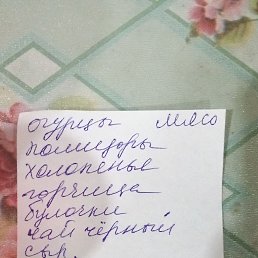 огурцы мясо
помидоры
халопенье
горчица
булочки
чай чёрный
сыр.